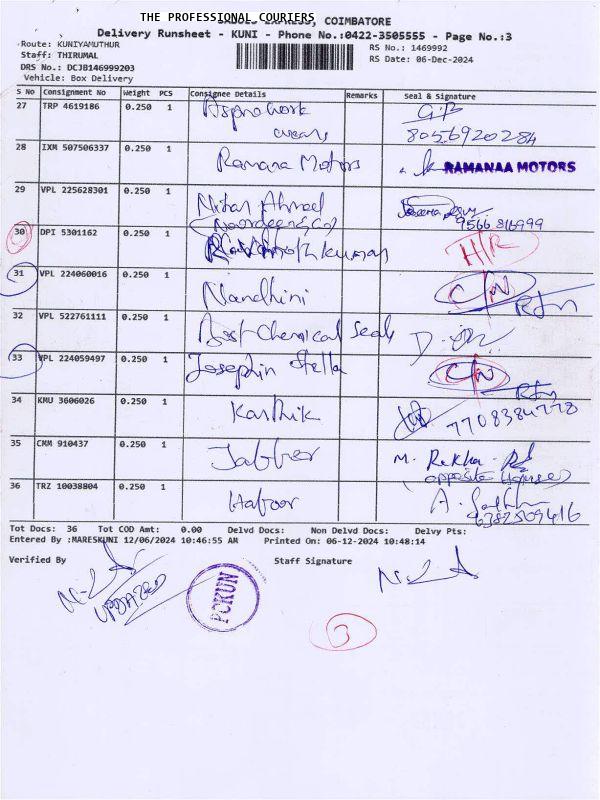 THE PROFESSIONAL COURIERS, COIMBATORE
Delivery Runsheet - KUNI - Phone No.:0422-3505555 - Page No.:3
Route: KUNIYAMUTHUR
RS No.: 1469992
Staff: THIRUMAL
RS Date: 06-Dec-2024
DRS No.: DCJB146999203
Vehicle: Box Delivery
S No Consignment No Weight PCS Consignee Details Remarks Seal & Signature
27 TRP 4619186 0.250 1
8056920284
28 IXM 507506337 0.250 1 Ramana Motors RAMANAA MOTORS
29 VPL 225628301 0.250 1 Ahmed
9566 816999
30 DPI 5301162 0.250 1 H/R
31 VPL 224060016 0.250 1 Nandhini C/N
32 VPL 522761111 0.250 1 Chemical Seals
33 VPL 224059497 0.250 1 Josephin Stella C/N
34 KMU 3606026 0.250 1 Karthik 7708384778
35 CMM 910437 0.250 1 Jabber M. Rekha
(opposite house)
36 TRZ 10038804 0.250 1
6382509616
Tot Docs: 36 Tot COD Amt: 0.00 Delvd Docs: Non Delvd Docs: Delvy Pts:
Entered By :MARESKUNI 12/06/2024 10:46:55 AM Printed On: 06-12-2024 10:48:14
Verified By Staff Signature
UPDATED
PCKUN
3